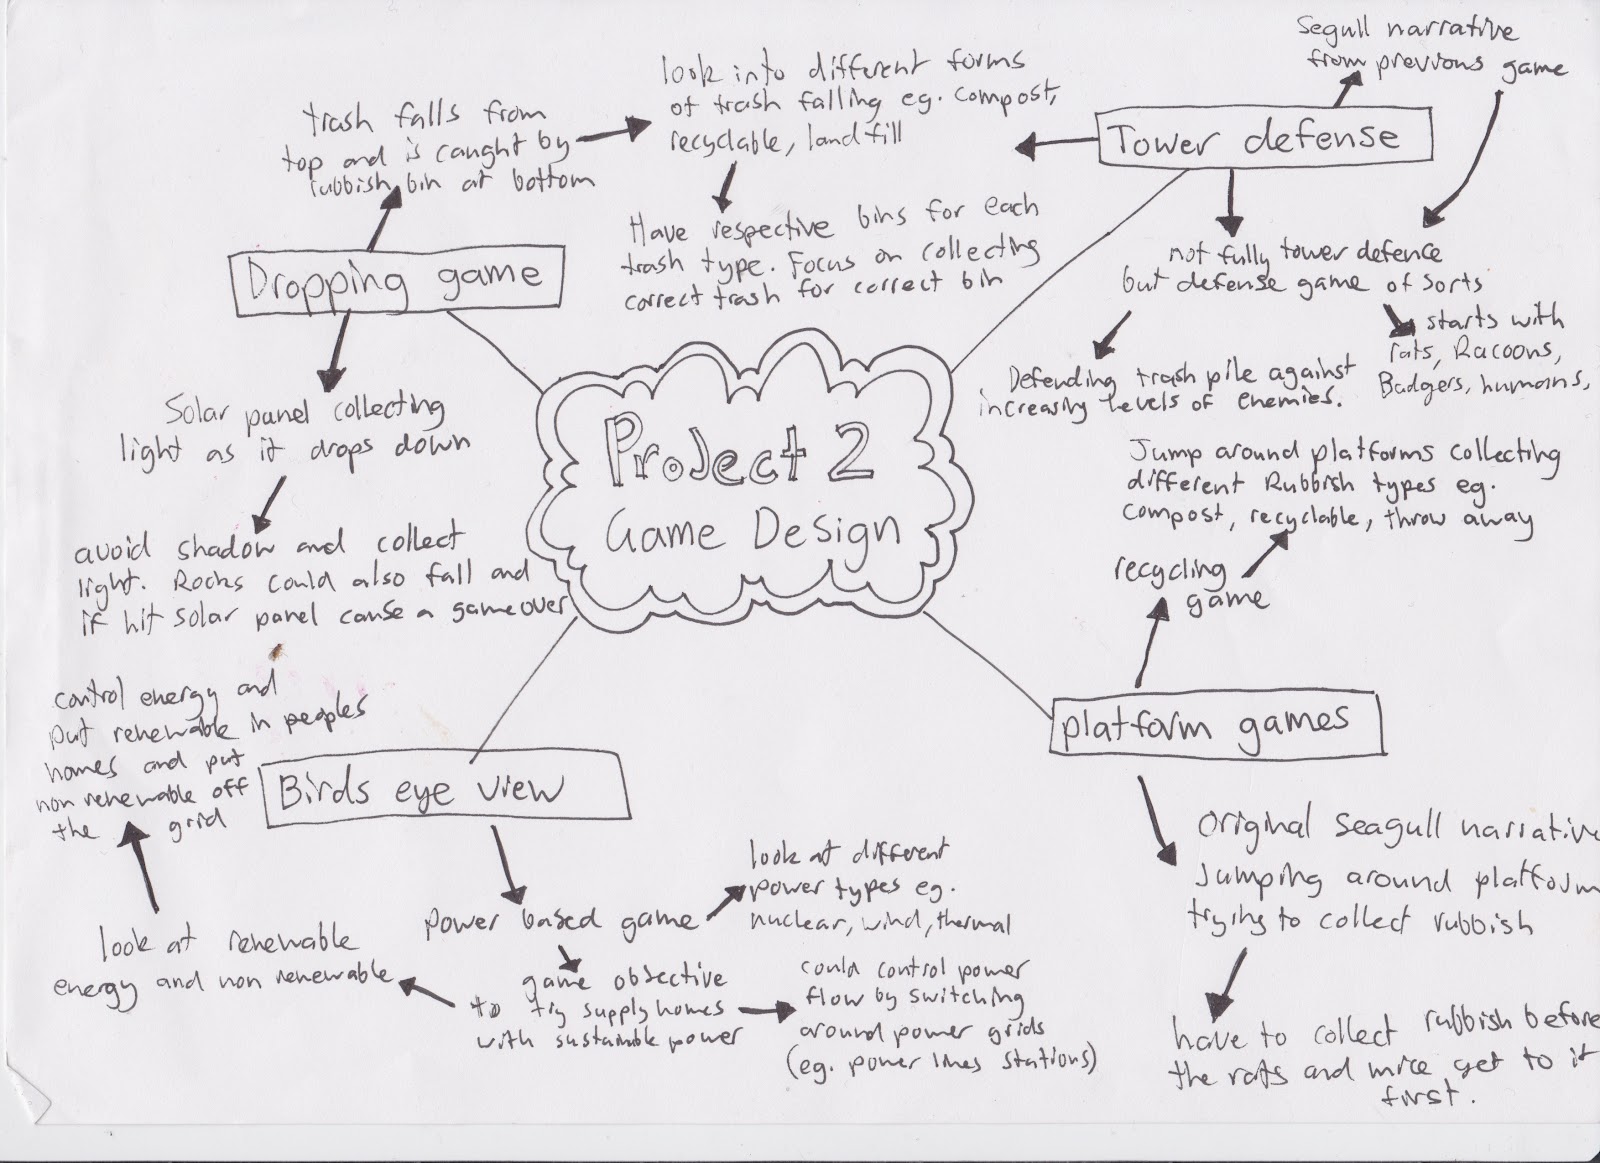 Project 2
Game Design
Dropping game
trash falls from
top and is caught by
rubbish bin at bottom
look into different forms
of trash falling eg. compost,
recyclable, landfill
Have respective bins for each
trash type. Focus on collecting
correct trash for correct bin
Solar panel collecting
light as it drops down
avoid shadow and collect
light. Rocks could also fall and
if hit solar panel cause a gameover
Tower defense
Segull narrative
from previous game
not fully tower defence
but defense game of sorts
starts with
rats, Racoons,
Badgers, humans,
Defending trash pile against
increasing levels of enemies.
platform games
recycling
game
Jump around platforms collecting
different Rubbish types eg.
compost, recyclable, throw away
Original Seagull narrative
Jumping around platform
trying to collect rubbish
have to collect rubbish before
the rats and mice get to it
first.
Birds eye view
power based game
look at different
power types eg.
nuclear, wind, thermal
game objective
to try supply homes
with sustainable power
could control power
flow by switching
around power grids
(eg. power lines stations)
look at renewable
energy and non renewable
control energy and
put renewable in peoples
homes and put
non renewable off
the grid